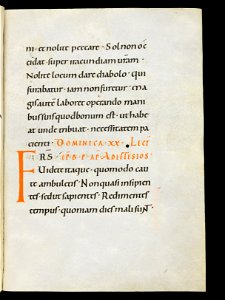 ni. et nolite peccare. Sol non oc
cidat super iracundiam uram.
Nolite locum dare diabolo. qui
furabatur. iam non furetur. ma
gis aute laboret operando mani
bus suis quod bonum est. ut habe
at unde tribuat. necessitatem pa
tienti. DOMINICA. XX. LECT
EPLE B. P. AP. AD EFESIOS
FRS. Uidete itaque. quomodo cau
te ambuletis. Non quasi insipien
tes. sed ut sapientes. Redimentes
tempus. quoniam dies mali sunt